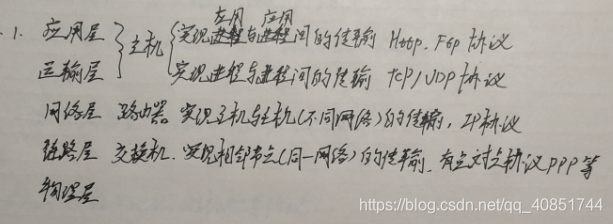 应用 应用
1. 应用层 主机 实现进程与进程间的传输 Http、Ftp协议
运输层 实现进程与进程间的传输 TCP/UDP协议
网络层 路由器 实现主机与主机(不同网络)的传输,IP协议
链路层 交换机. 实现相邻节点(同一网络)的传输,有点对点协议PPP等
物理层
https://blog.csdn.net/qq_40851744